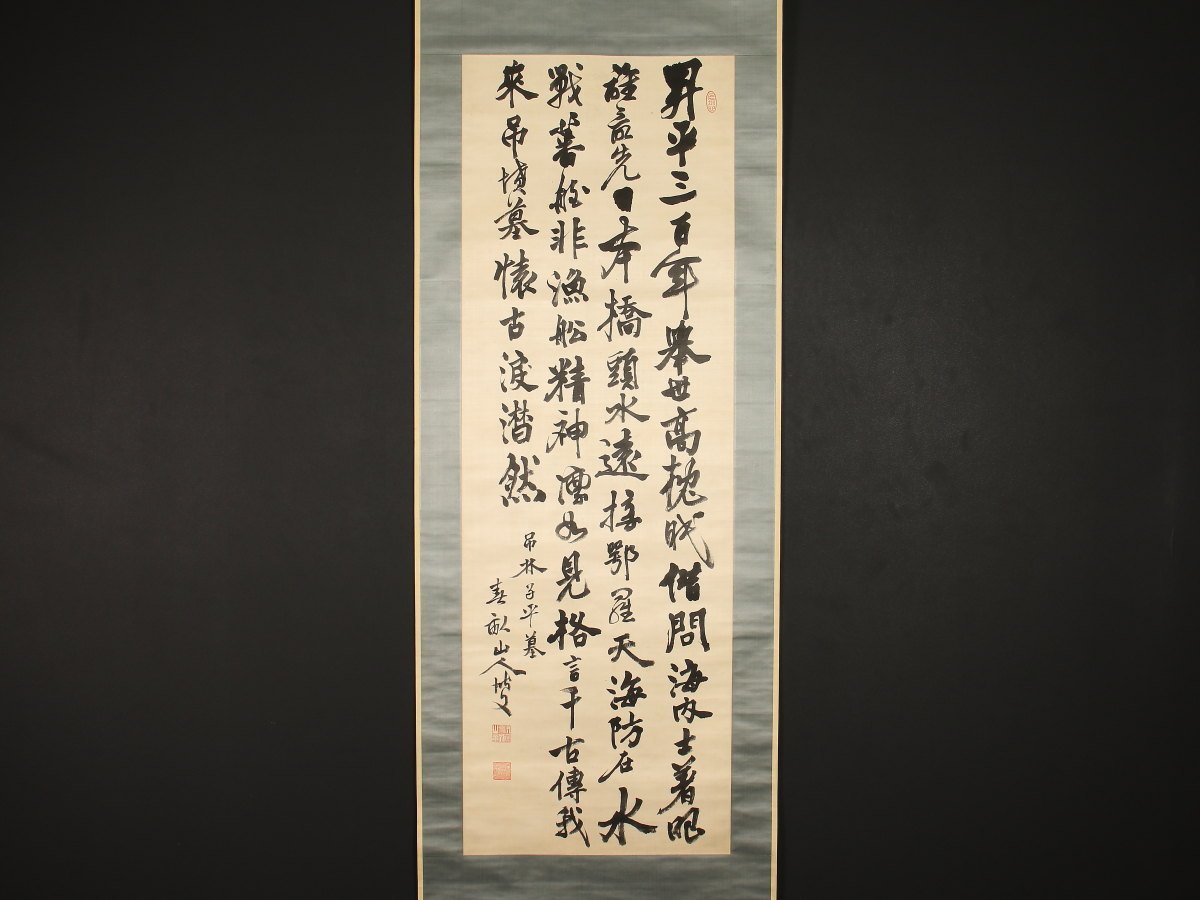 昇平三百年舉世高枕眠借問海内士著眼
誰益先日本橋頭水遠接鄂羅天海防在水
戰蕃舶非漁船精神凛如見格言千古傳我
來吊墳墓懐古涙潸然
吊林子平墓
春畝山人博文